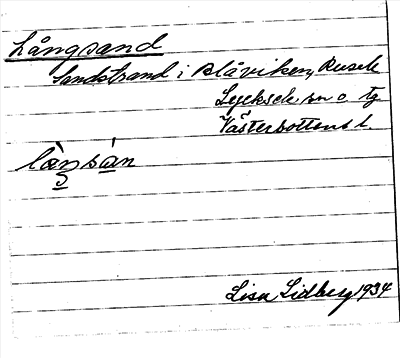 Långsand
Sandstrand i Blåviken, Rusele
Lycksele sn o. tg
Västerbottens l.
lån̂sàn
Lisa Lidberg 1934